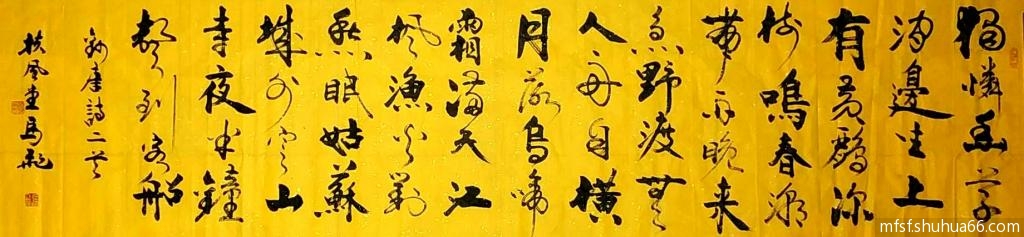 獨憐幽草
澗邊生上
有黃鸝深
樹鳴春潮
帶雨晚来
急野渡無
人舟自橫
月落烏啼
霜滿天江
楓漁火對
愁眠姑蘇
城外寒山
寺夜半鐘
聲到客船
錄唐詩二首
扶風堂馬
mfsf.shuhua66.com